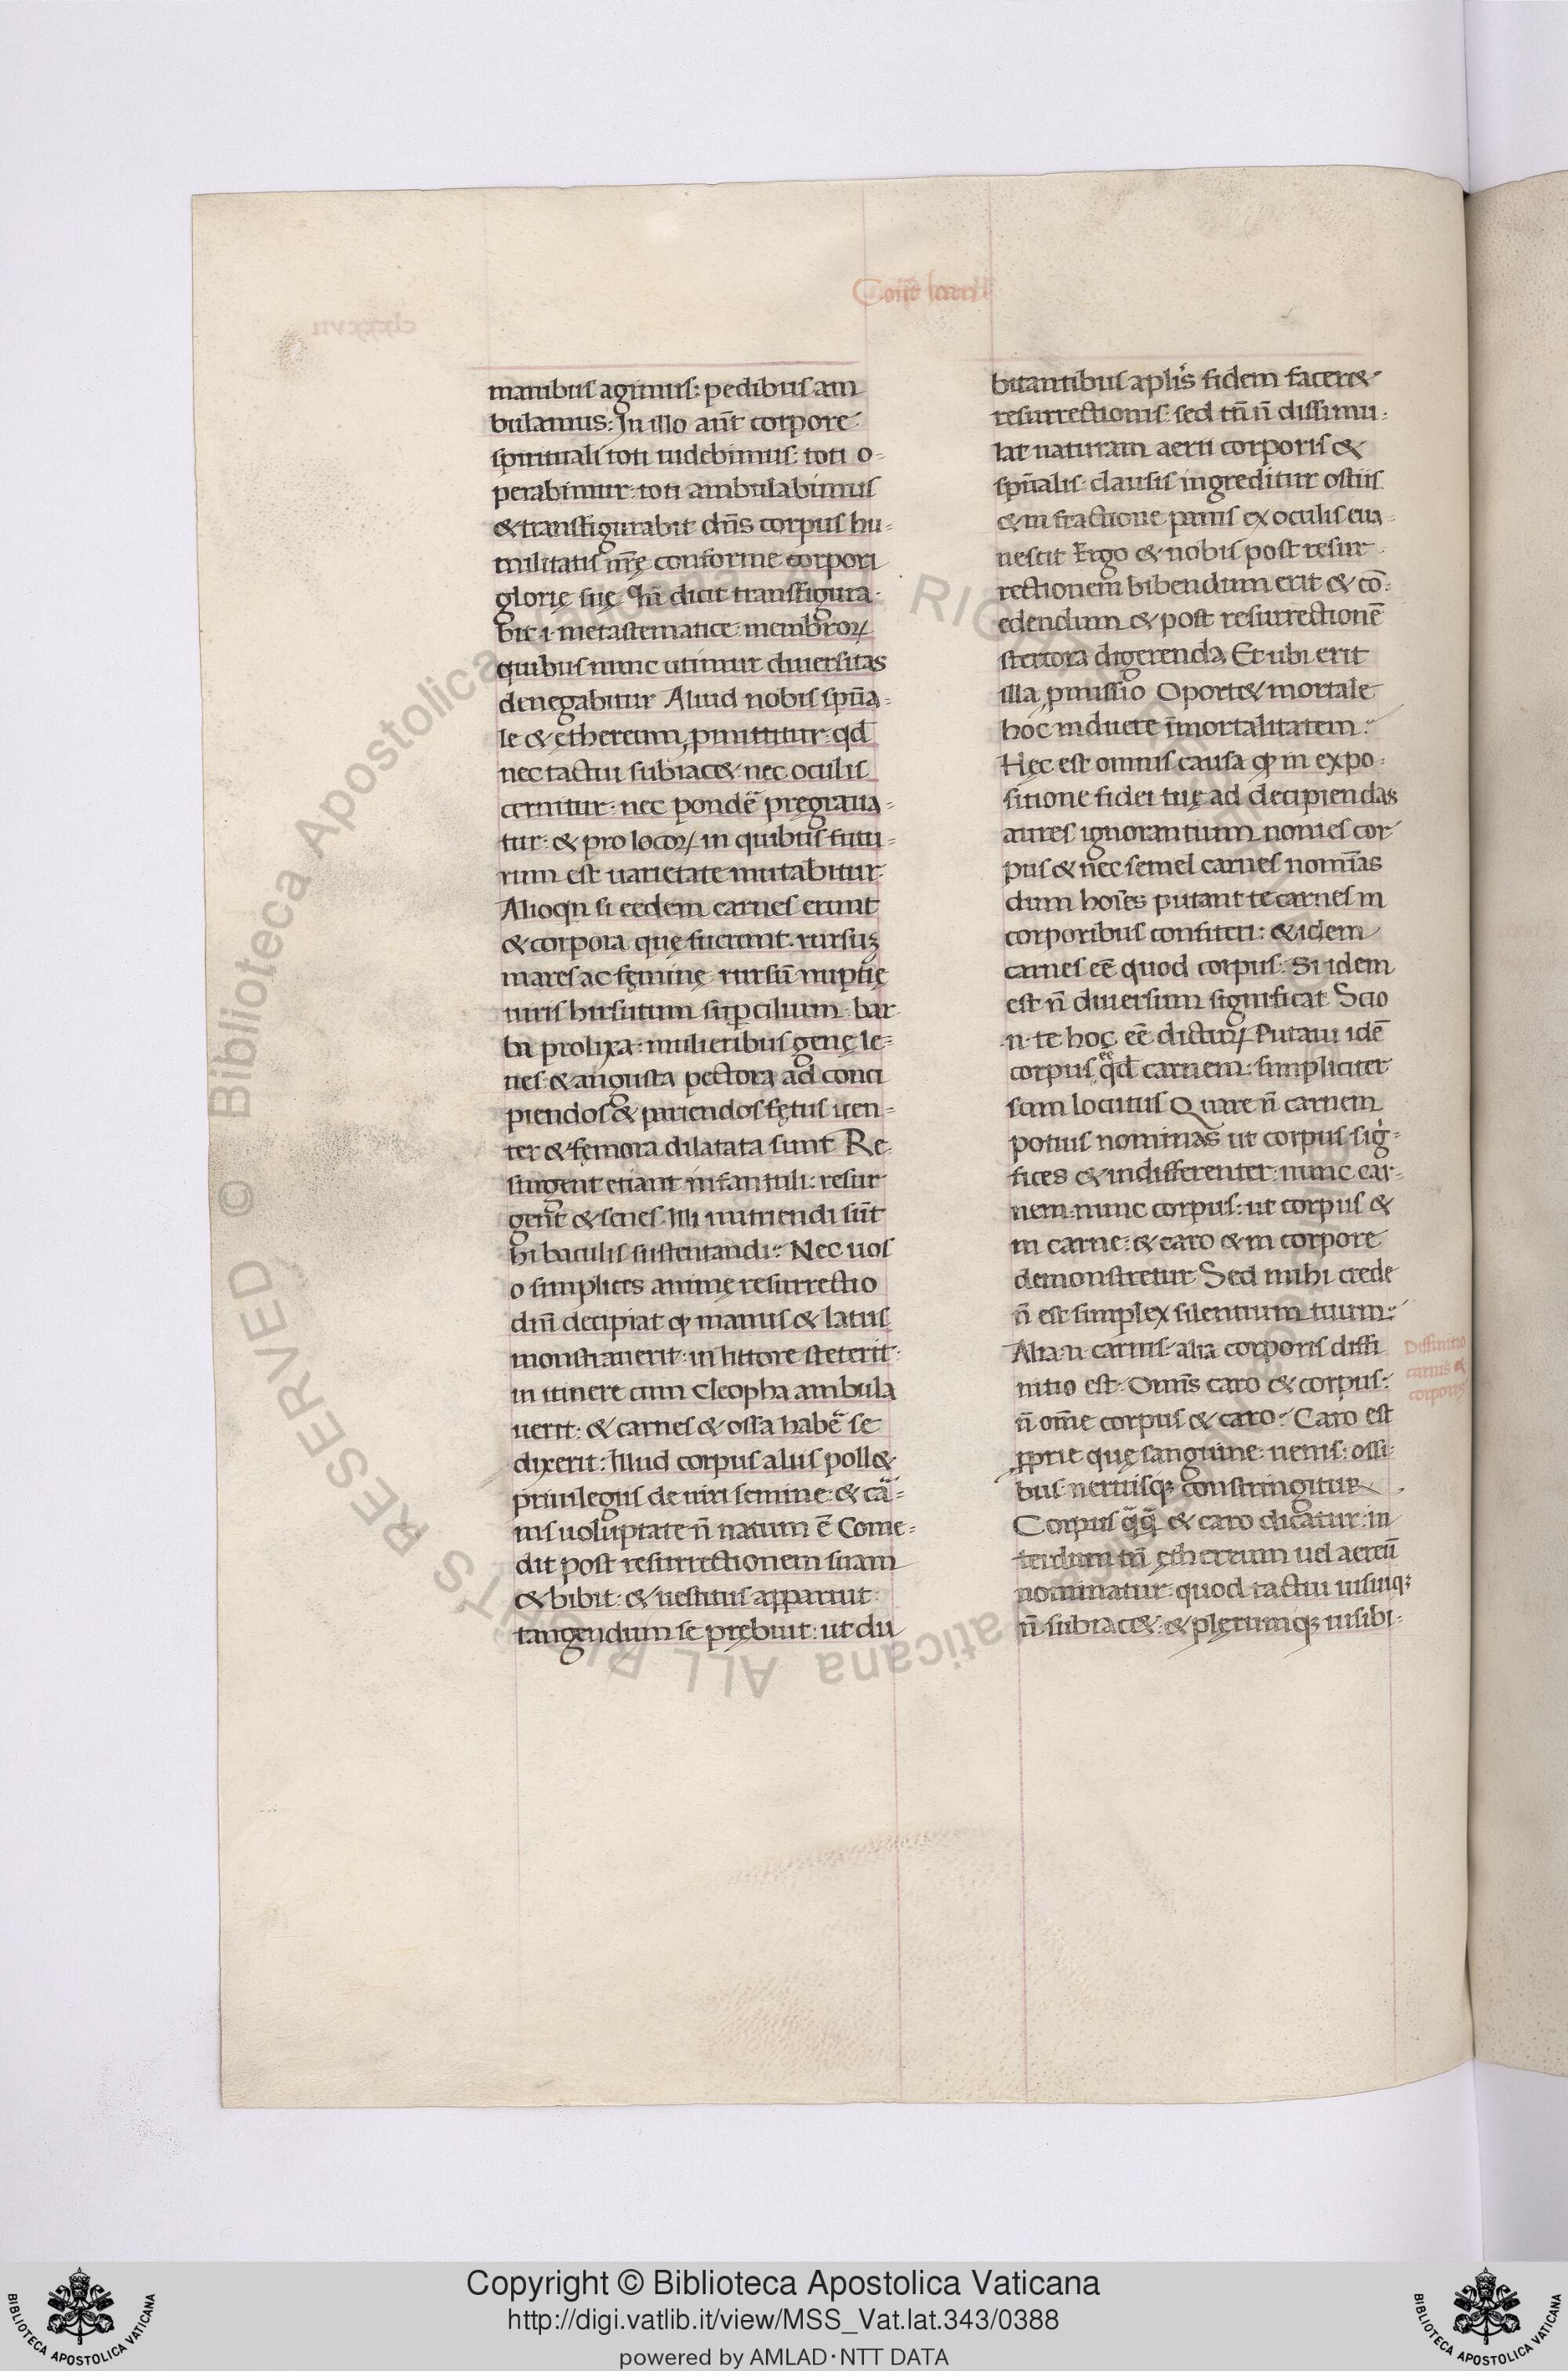 manibus agimus: pedibus am
bulamus: In illo aūt corpore
spirituali toti uidebimus: toti o-
perabimur: toti ambulabimus
& transfigurabit dn̄s corpus hu-
militatis nr̄ę conforme corpori
glorię suę dicit transfigura-
bit ·i· metastematice: membroꝝ
quibus nunc utimur diuersitas
denegabitur Aliud nobis spūa-
le & ethereum ꝓmittitur: qd̄
nec tactui subiac&: nec oculis
cernitur: nec pondē pręgraua-
tur: & pro locoꝝ in quibus futu-
rum est uarietate mutabitur.
Alioqn si eedem carnes erunt
& corpora quę fuerunt: rursuꝫ
mares ac fęminę: rursū nuptię
uiris hirsutum suꝑcilium: bar-
ba prolixa: mulieribus genę le-
ues: & angusta pectora ad conci
piendos & pariendos fętus uen-
ter & femora dilatata sunt Re-
surgent etiam infantuli: resur
gent & senes. Illi nutriendi sūt
hi baculis sustentandi: Nec uos
o simplices animę resurrectio
dnī decipiat ꝙ manus & latus
monstrauerit: in littore steterit:
in itinere cum Cleopha ambula
uerit: & carnes & ossa habē se
dixerit: Illud corpus aliis poll&
priuilegiis de uiri semine: & cā-
nis uoluptate n̄ natum ē Come-
dit post resurrectionem suam
& bibit: & uestitus apparuit:
tangendum se prębuit: ut du
bitantibus aplis fidem facer&
resurrectionis: sed tn̄ n̄ dissimu-
lat naturam aerii corporis &
spūalis: clausis ingreditur ostiis
& in fractione panis ex oculis eua-
nescit Ergo & nobis post resur-
rectionem bibendum erit & cō-
edendum & post resurrectionē
stercora digerenda Et ubi erit
illa ꝓmissio Oport& mortale
hoc induere īmortalitatem:
Hęc est omnis causa ꝙ in expo-
sitione fidei tuę ad decipiendas
aures ignorantium nouies cor-
pus & nec semel carnes nomīas
dum hoīes putant te carnes in
corporibus confiteri: & idem
carnes eē quod corpus: Si idem
est n̄ diuersum significat Scio
·n· te hoc eē dicturꝝ Putaui idē
corpus qd̄ carnem: simpliciter
sum locutus Quare n̄ carnem
potius nominas ut corpus sig-
fices & indifferenter nunc car-
nem: nunc corpus: ut corpus &
in carne: & caro & in corpore
demonstretur Sed mihi crede
n̄ est simplex silentium tuum:
Alia ·n· carnis: alia corporis diffi
nitio est: Omīs caro & corpus:
n̄ om̄e corpus & caro: Caro est
ꝓprie quę sanguine: uenis: ossi-
bus: neruisqꝫ constringitur
Corpus qq̄ & caro dicatur: in
terdum tn̄ ęthereum uel aereū
nominatur: quod tactui uisuiqꝫ
n̄ subiac&: & plęrumqꝫ uisibi-
Diffinitio
carnis &
corporis
Copyright © Biblioteca Apostolica Vaticana
http://digi.vatlib.it/view/MSS_Vat.lat.343/0388
powered by AMLAD·NTT DATA
© Biblioteca Apostolica Vaticana ALL RIGHTS RESERVED
BIBLIOTECA APOSTOLICA VATICANA
BIBLIOTECA APOSTOLICA VATICANA